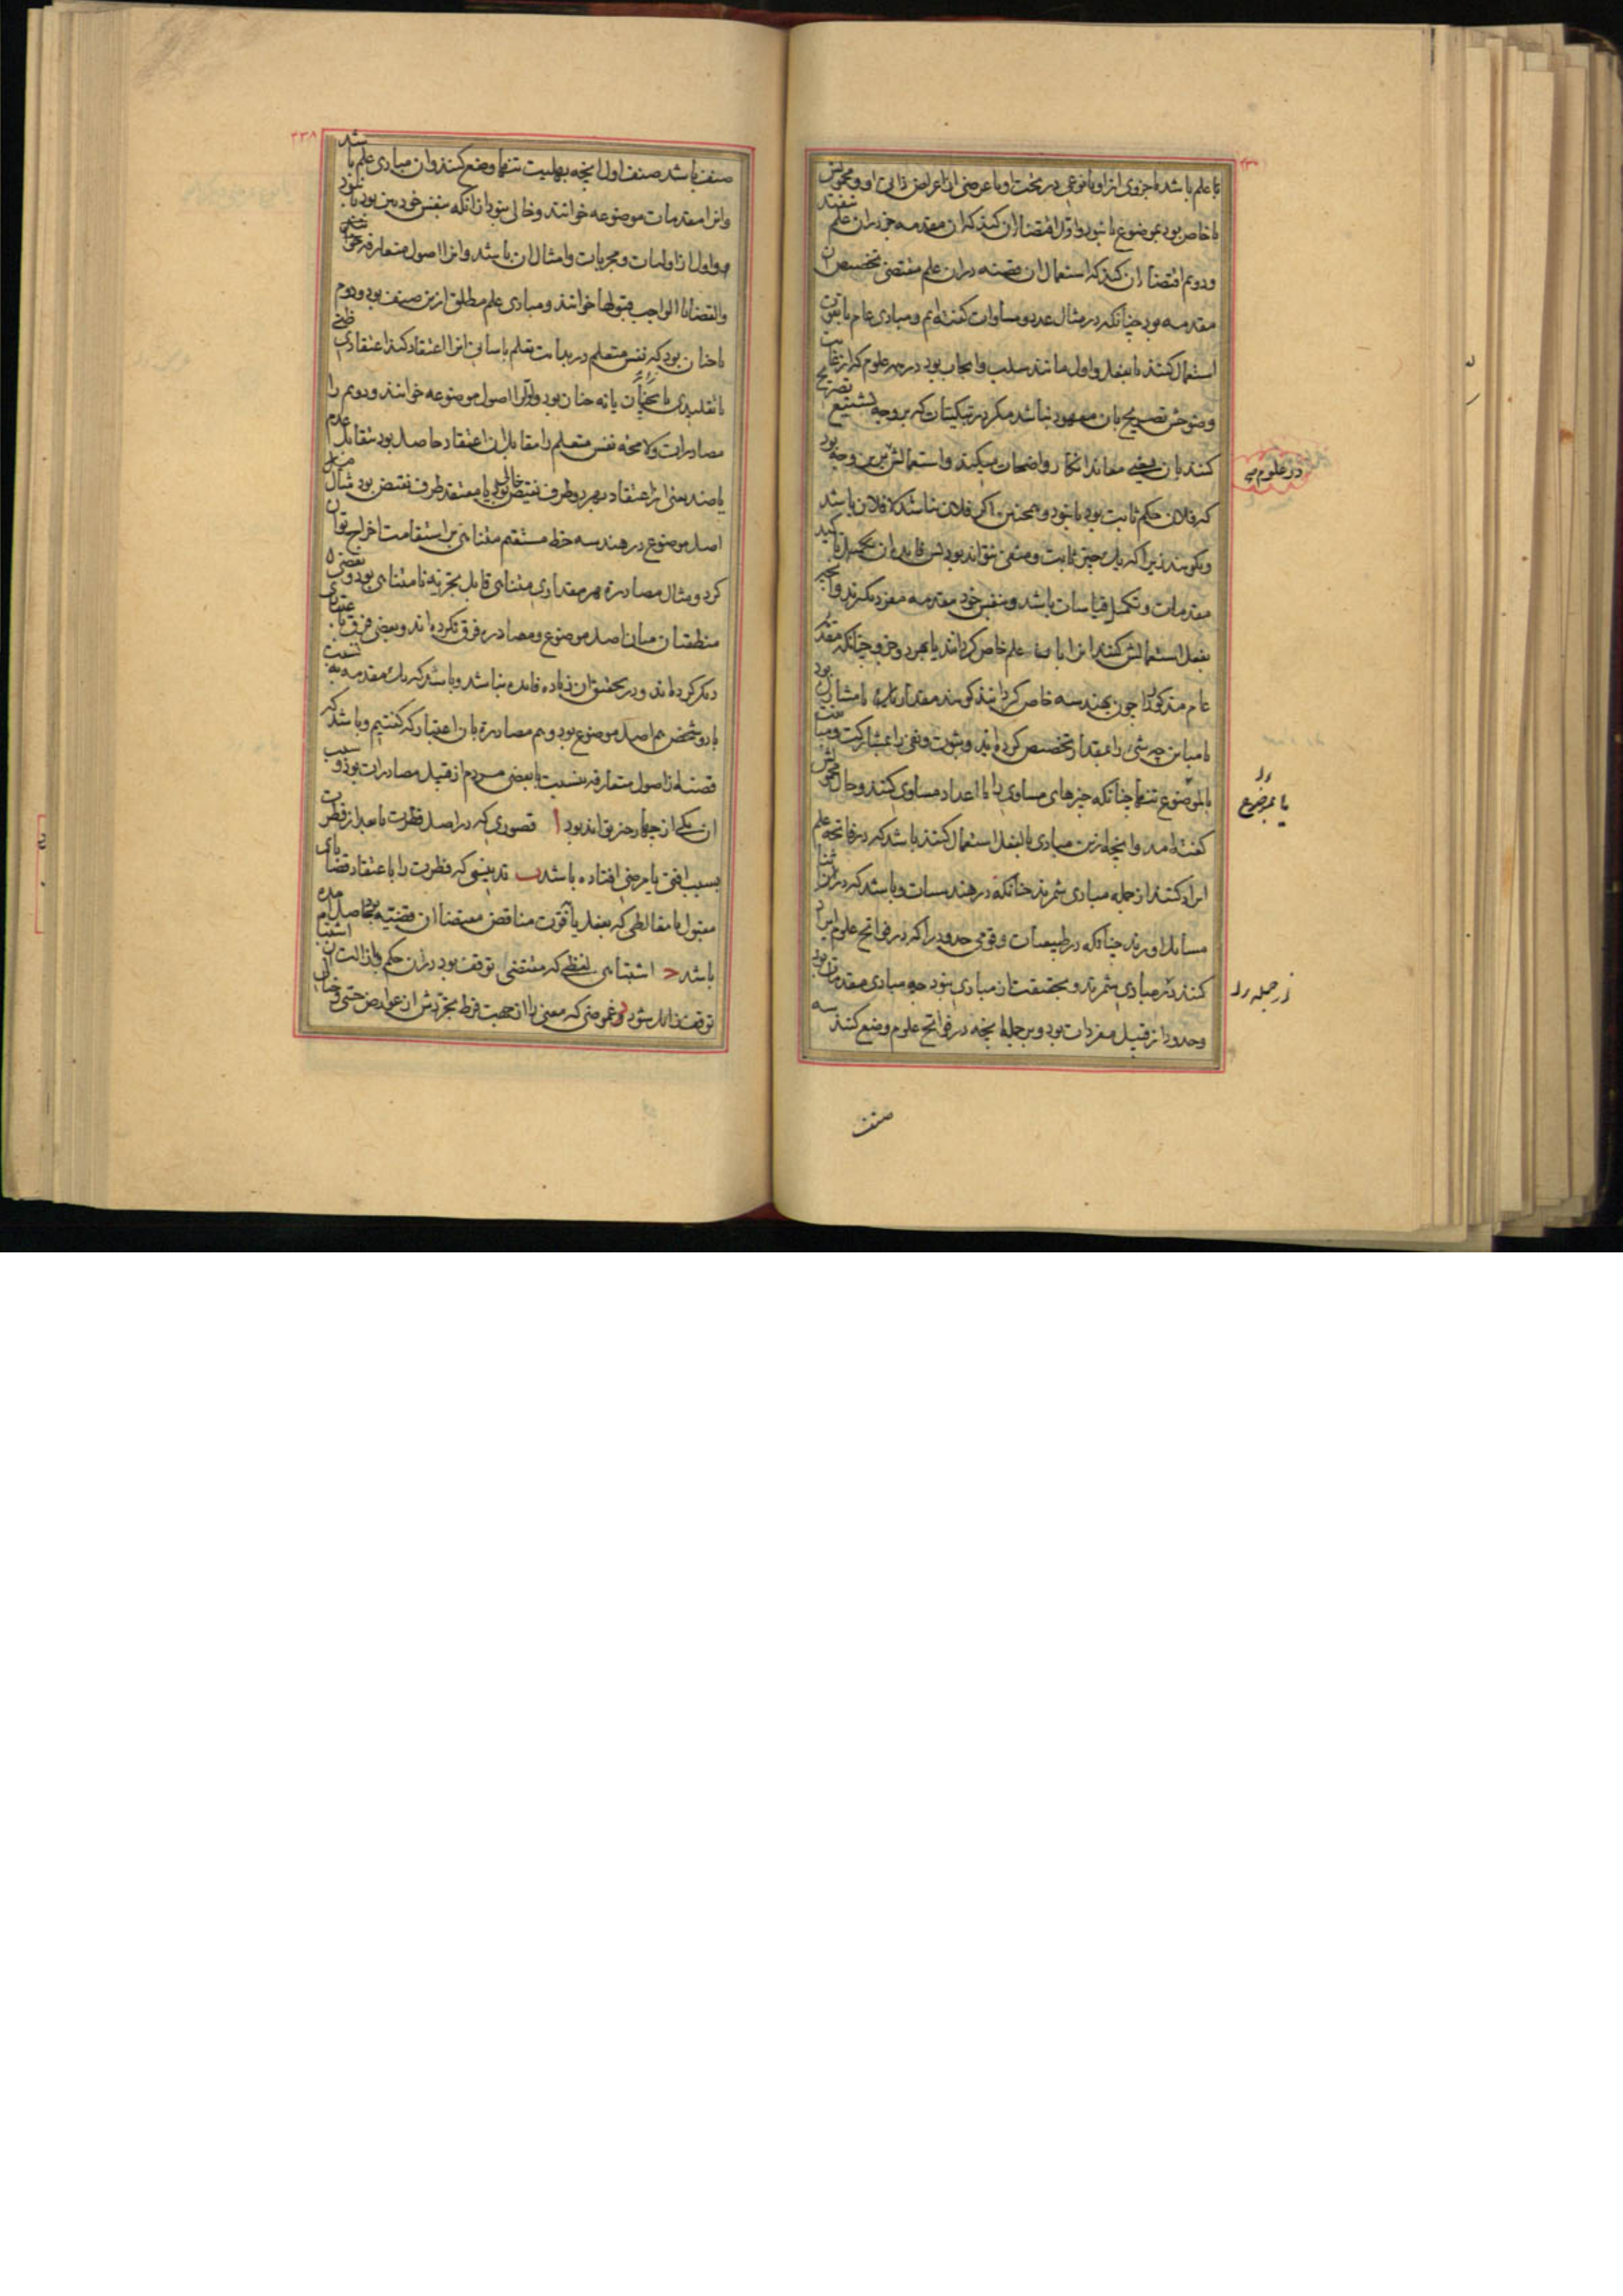 یا علم باشد یا جزوی ازو یا نوعی در تحت او یا عرضی از اعراض ذاتی او و محمولش
یا خاص بود بموضوع یا نبود و اول اقتضا آن کند که آن مقدمه جز در آن علم نیفتد
و دویم اقتضا آن کند که استعمال آن قضیه در آن علم مقتضی تخصیص آن
مقدمه بود چنانکه در مثال عدد و مساوات گفته‌ایم و مبادی عام یا بقوت
استعمال کنند یا بفعل و اول مانند سلب و ایجاب بود در همه علوم که از غایت
وضوحش تصریح بان معهود نباشد مگر در تبکیتات که بر وجه تشنیع تصریح
کنند بان یعنی معاند انکار واضحات میکند و استعمالش برین وجه بود
که فلان حکم ثابت بود یا نبود و همچنین اگر فلان نباشد لا فلان باشد
و نگویند زیرا که یک چیز ثابت و منفی نتواند بود پس فایده آن تکمیل تاکید
مقدمات و تکمیل قیاسات باشد و بنفس خود مقدمه مفرد نگیرند و آنچه
بفعل استعمالش کنند آنرا با علم خاص گردانند یا بهر دو جزو چنانکه مقدمه
عام مذکور را چون بهندسه خاص گردانند گویند مقدار یا مشارک بود
یا مباین چه شیء را بمقدار تخصیص کرده‌اند و ثبوت و نفی را بمشارکت و مباینت
یا بموضوع تنها چنانکه چیزهای مساوی را با اعداد مساوی کنند و حال محمولش
گفته آمد و آنچه ازین مبادی بالفعل استعمال کنند باشد که در فاتحه علم
ایراد کنند از جمله مبادی شمرند چنانکه در هندسیات و باشد که در اثنا
مسایل آورند چنانکه در طبیعیات و قومی حدود را که در فواتح علوم ایراد
کنند در مبادی شمرند و بحقیقت از مبادی نبود چه مبادی مقدمات بود
و حدود از قبیل مفردات بود و بر جمله آنچه در فواتح علوم وضع کنند سه
در علوم
یا بموضوع
از جمله
صنف
۲۳۸
صنف باشد صنف اول آنچه بهلیت تنها وضع کنند و آن مبادی علم باشد
و آنرا مقدمات موضوعه خوانند و خالی نبود از آنکه بنفس خود بین بود یا نبود
و اول از اولیات و مجربات و امثال آن باشد و آنرا اصول متعارفه خوانند
و القضایا الواجب قبولها خوانند و مبادی علم مطلق ازین صنف بود و دوم
یا چنان بود که نفس متعلم در بدایت تعلم باسانی آنرا اعتقاد کند اعتقادی ظنی
یا تقلیدی یا نه چنان بود و اول را اصول موضوعه خوانند و دویم را
مصادرات و لا محاله نفس متعلم را مقابل آن اعتقاد حاصل بود تقابل عدم
یا ضد یعنی از اعتقاد بهر دو طرف نقیض خالی بود یا معتقد طرف نقیض بود مثال
اصل موضوع در هندسه خط مستقیم متناهی بر استقامت اخراج توان
کرد و مثال مصادره هر مقداری متناهی قابل تجزیه نامتناهی بود و بعضی
منطقیان میان اصل موضوع و مصادره فرق نکرده‌اند و بعضی فرق
دیگر کرده‌اند و در تحقیق آن زیاده فایده نباشد و باشد که یک مقدمه به نسبت
با دو شخص هم اصل موضوع بود و هم مصادره بان اعتبار که گفتیم و باشد که
قضیه از اصول متعارفه بنسبت با بعضی مردم از قبیل مصادرات بود و سبب
آن یکی از چهار چیز تواند بود ا قصوری که در اصل فطرت یا بعد از فطرت
بسبب آفتی یا مرضی افتاده باشد ب که فطرت را باعتقاد قضایای
مقبول یا مغالطی که بفعل یا بقوت مناقض مقتضا آن قضیه بود حاصل آمده
باشد ح اشتباهی لفظی که مقتضی توقف بود در آن حکم و بازالت آن اشتباه
توقف زایل شود د غموضی که معنی را از جهت فرط تجردش از عوارض حسی و خیالی